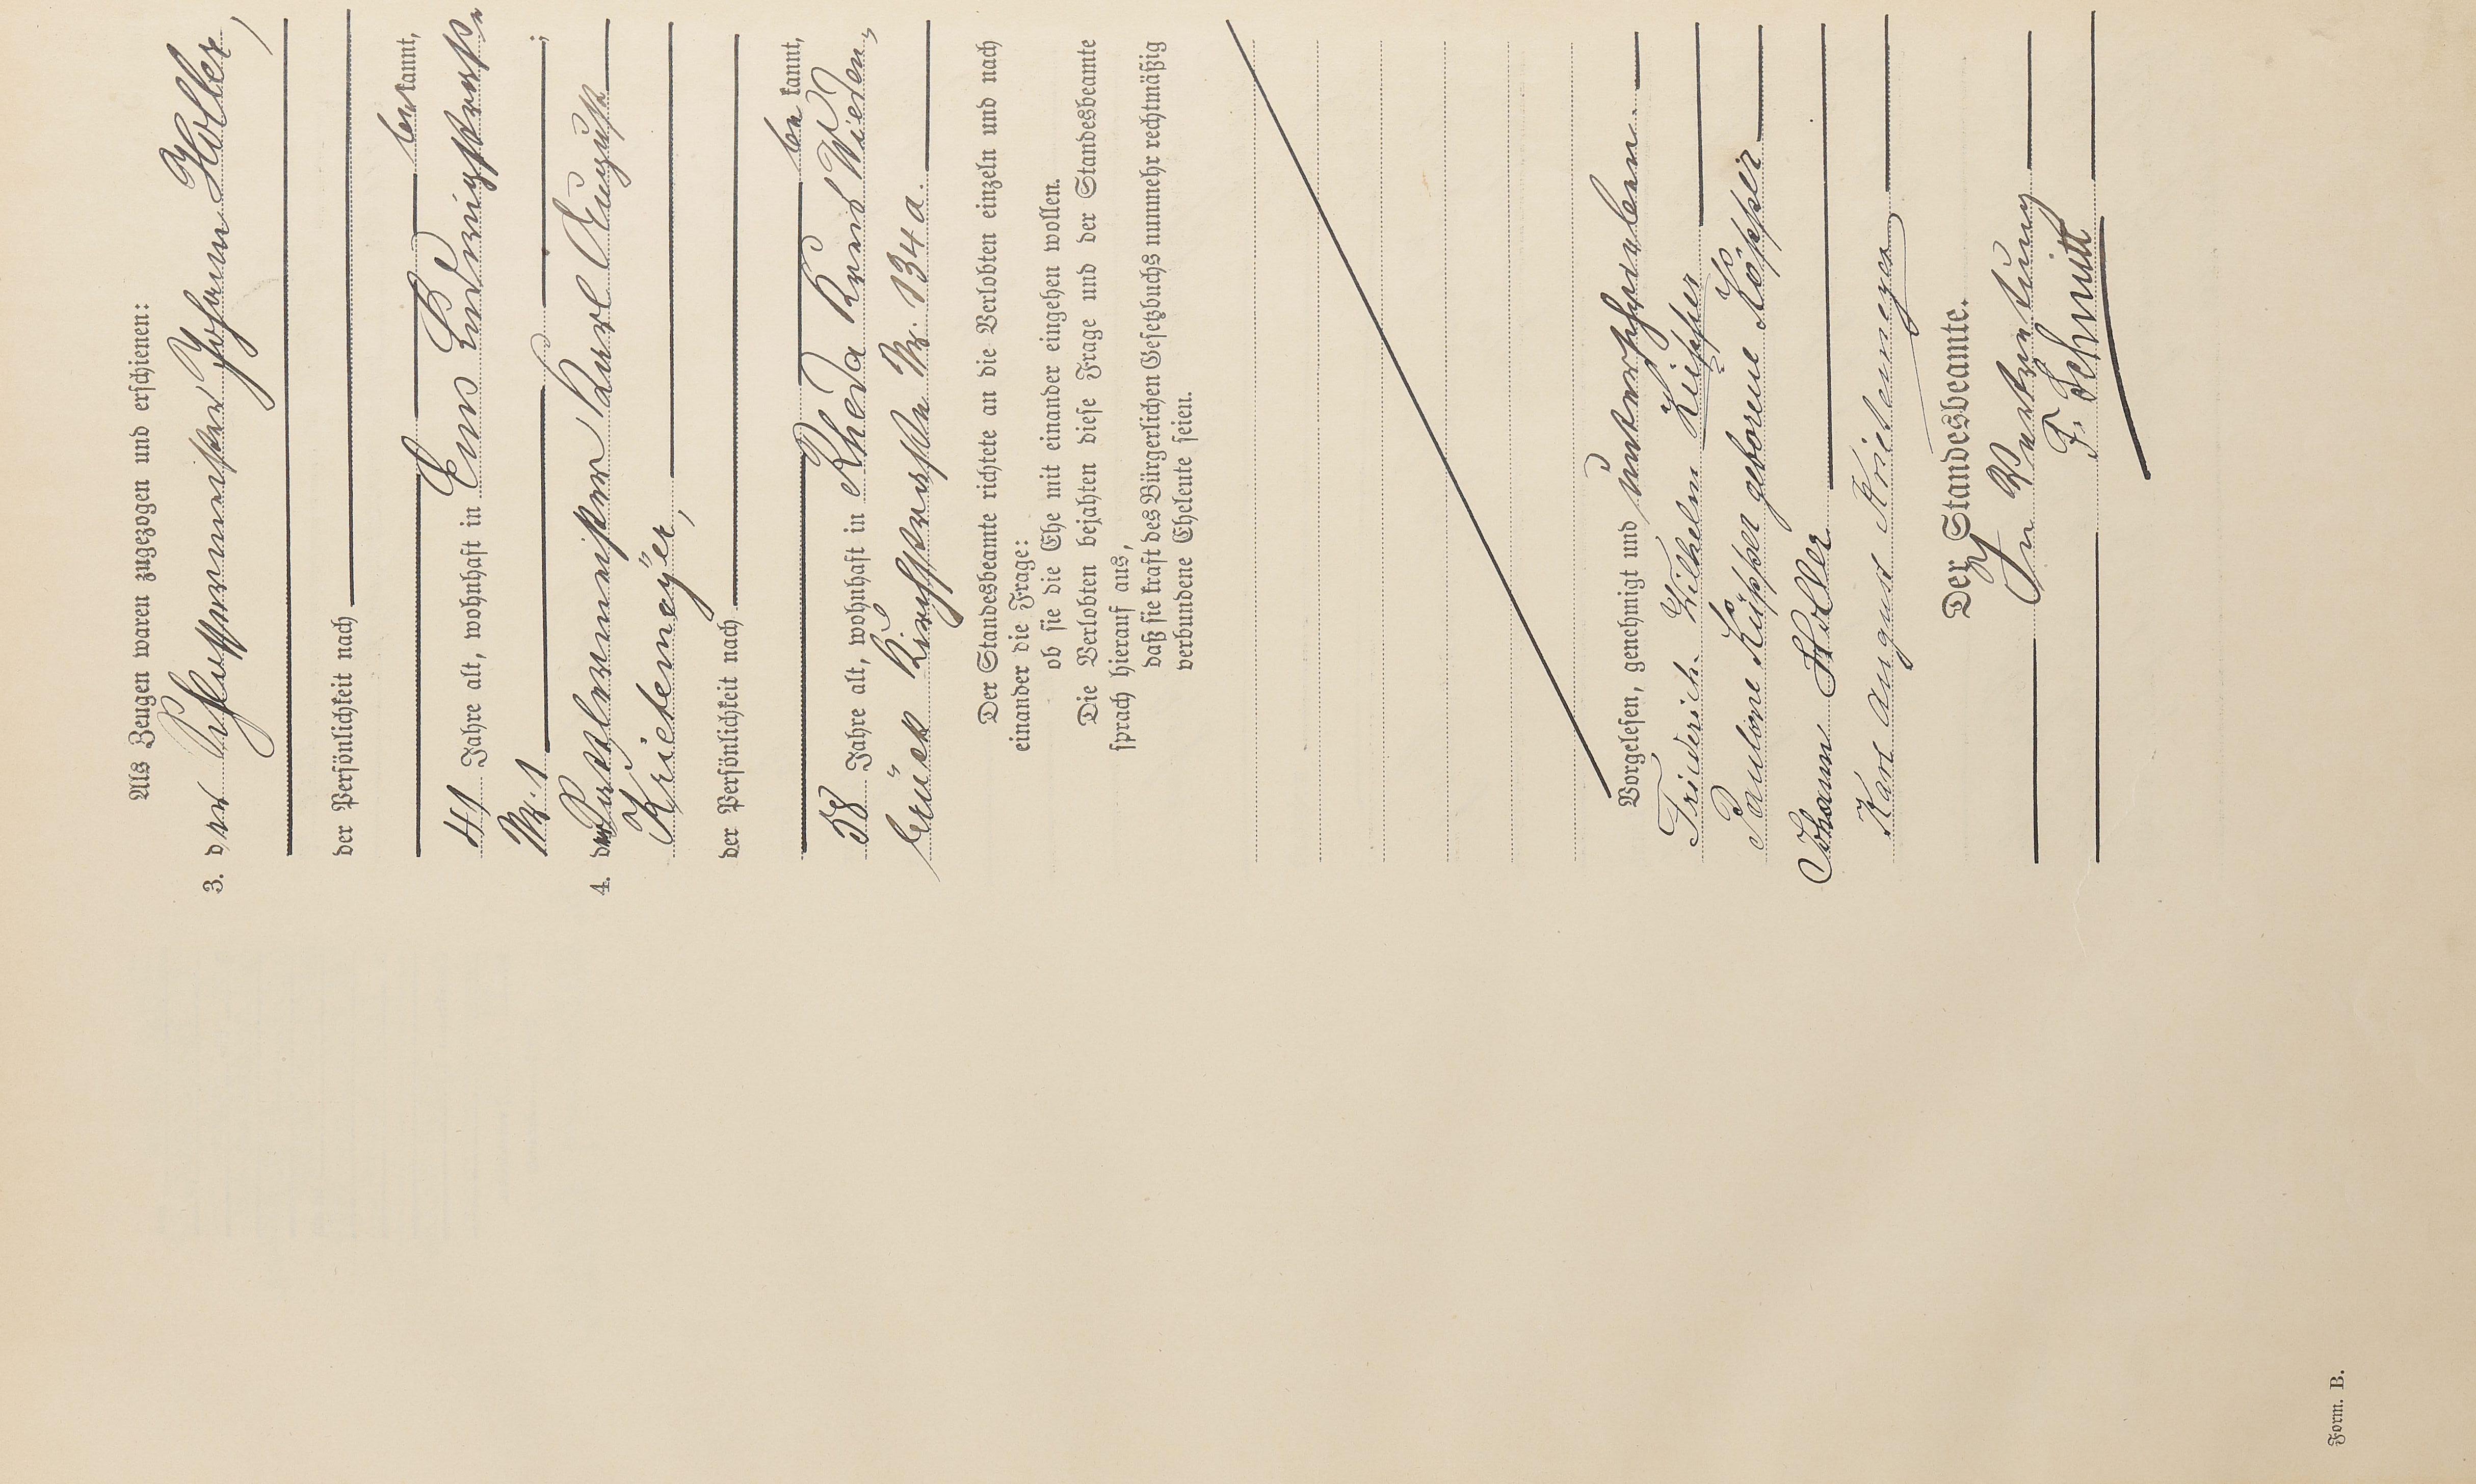 Als Zeugen waren zugezogen und erschienen:
3. der Schaffnermeister Johann Holler,
der Persönlichkeit nach
be kannt,
41 Jahre alt, wohnhaft in Ems Ludwigstraße
Nr. 1 ;
4. der Karl August
Kriedemeyer,
der Persönlichkeit nach
be kannt,
58 Jahre alt, wohnhaft in Rheda Kreis Wieden„
brück Kirchstraße Nr. 134 a.
Der Standesbeamte richtete an die Verlobten einzeln und nach
einander die Frage:
ob sie die Ehe mit einander eingehen wollen.
Die Verlobten bejahten diese Frage und der Standesbeamte
sprach hierauf aus,
daß sie kraft des Bürgerlichen Gesetzbuchs nunmehr rechtmäßig
verbundene Eheleute seien.
Vorgelesen, genehmigt und unterschrieben.
Friederich Wilhelm Küpper
Pauline Küpper geborene Köpper
Johann Holler
Karl August Kriedemeyer
Der Standesbeamte.
In Vertretung
F. Schmitt
Form. B.